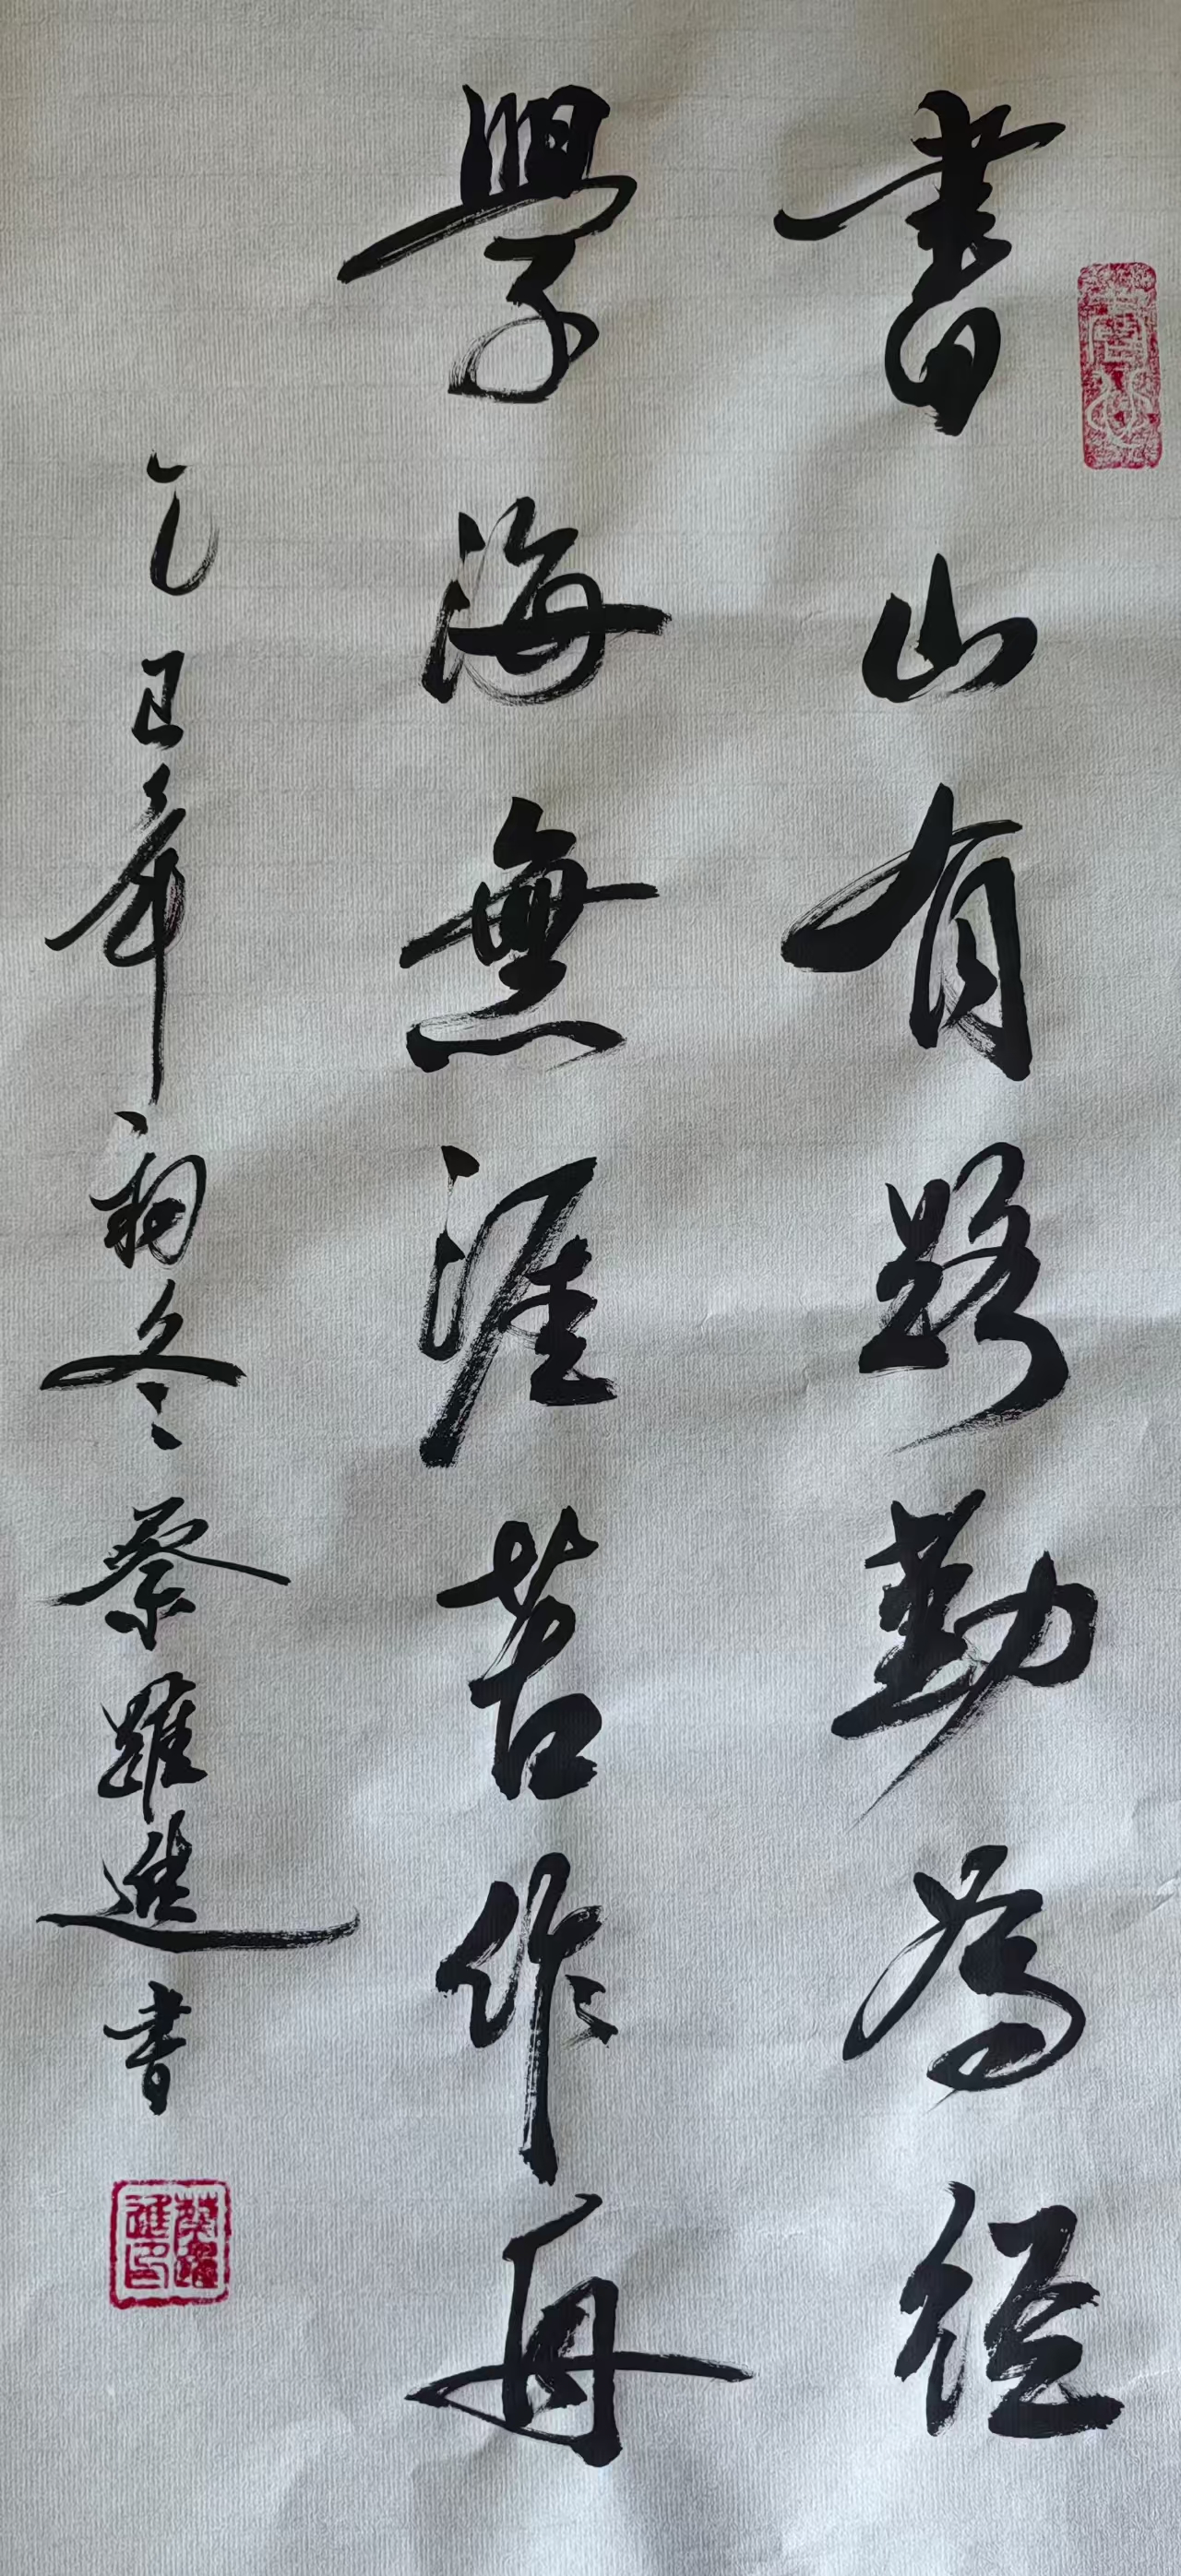 書山有路勤為徑
學海無涯苦作舟
乙巳年初冬蔡躍進書
蔡躍進印